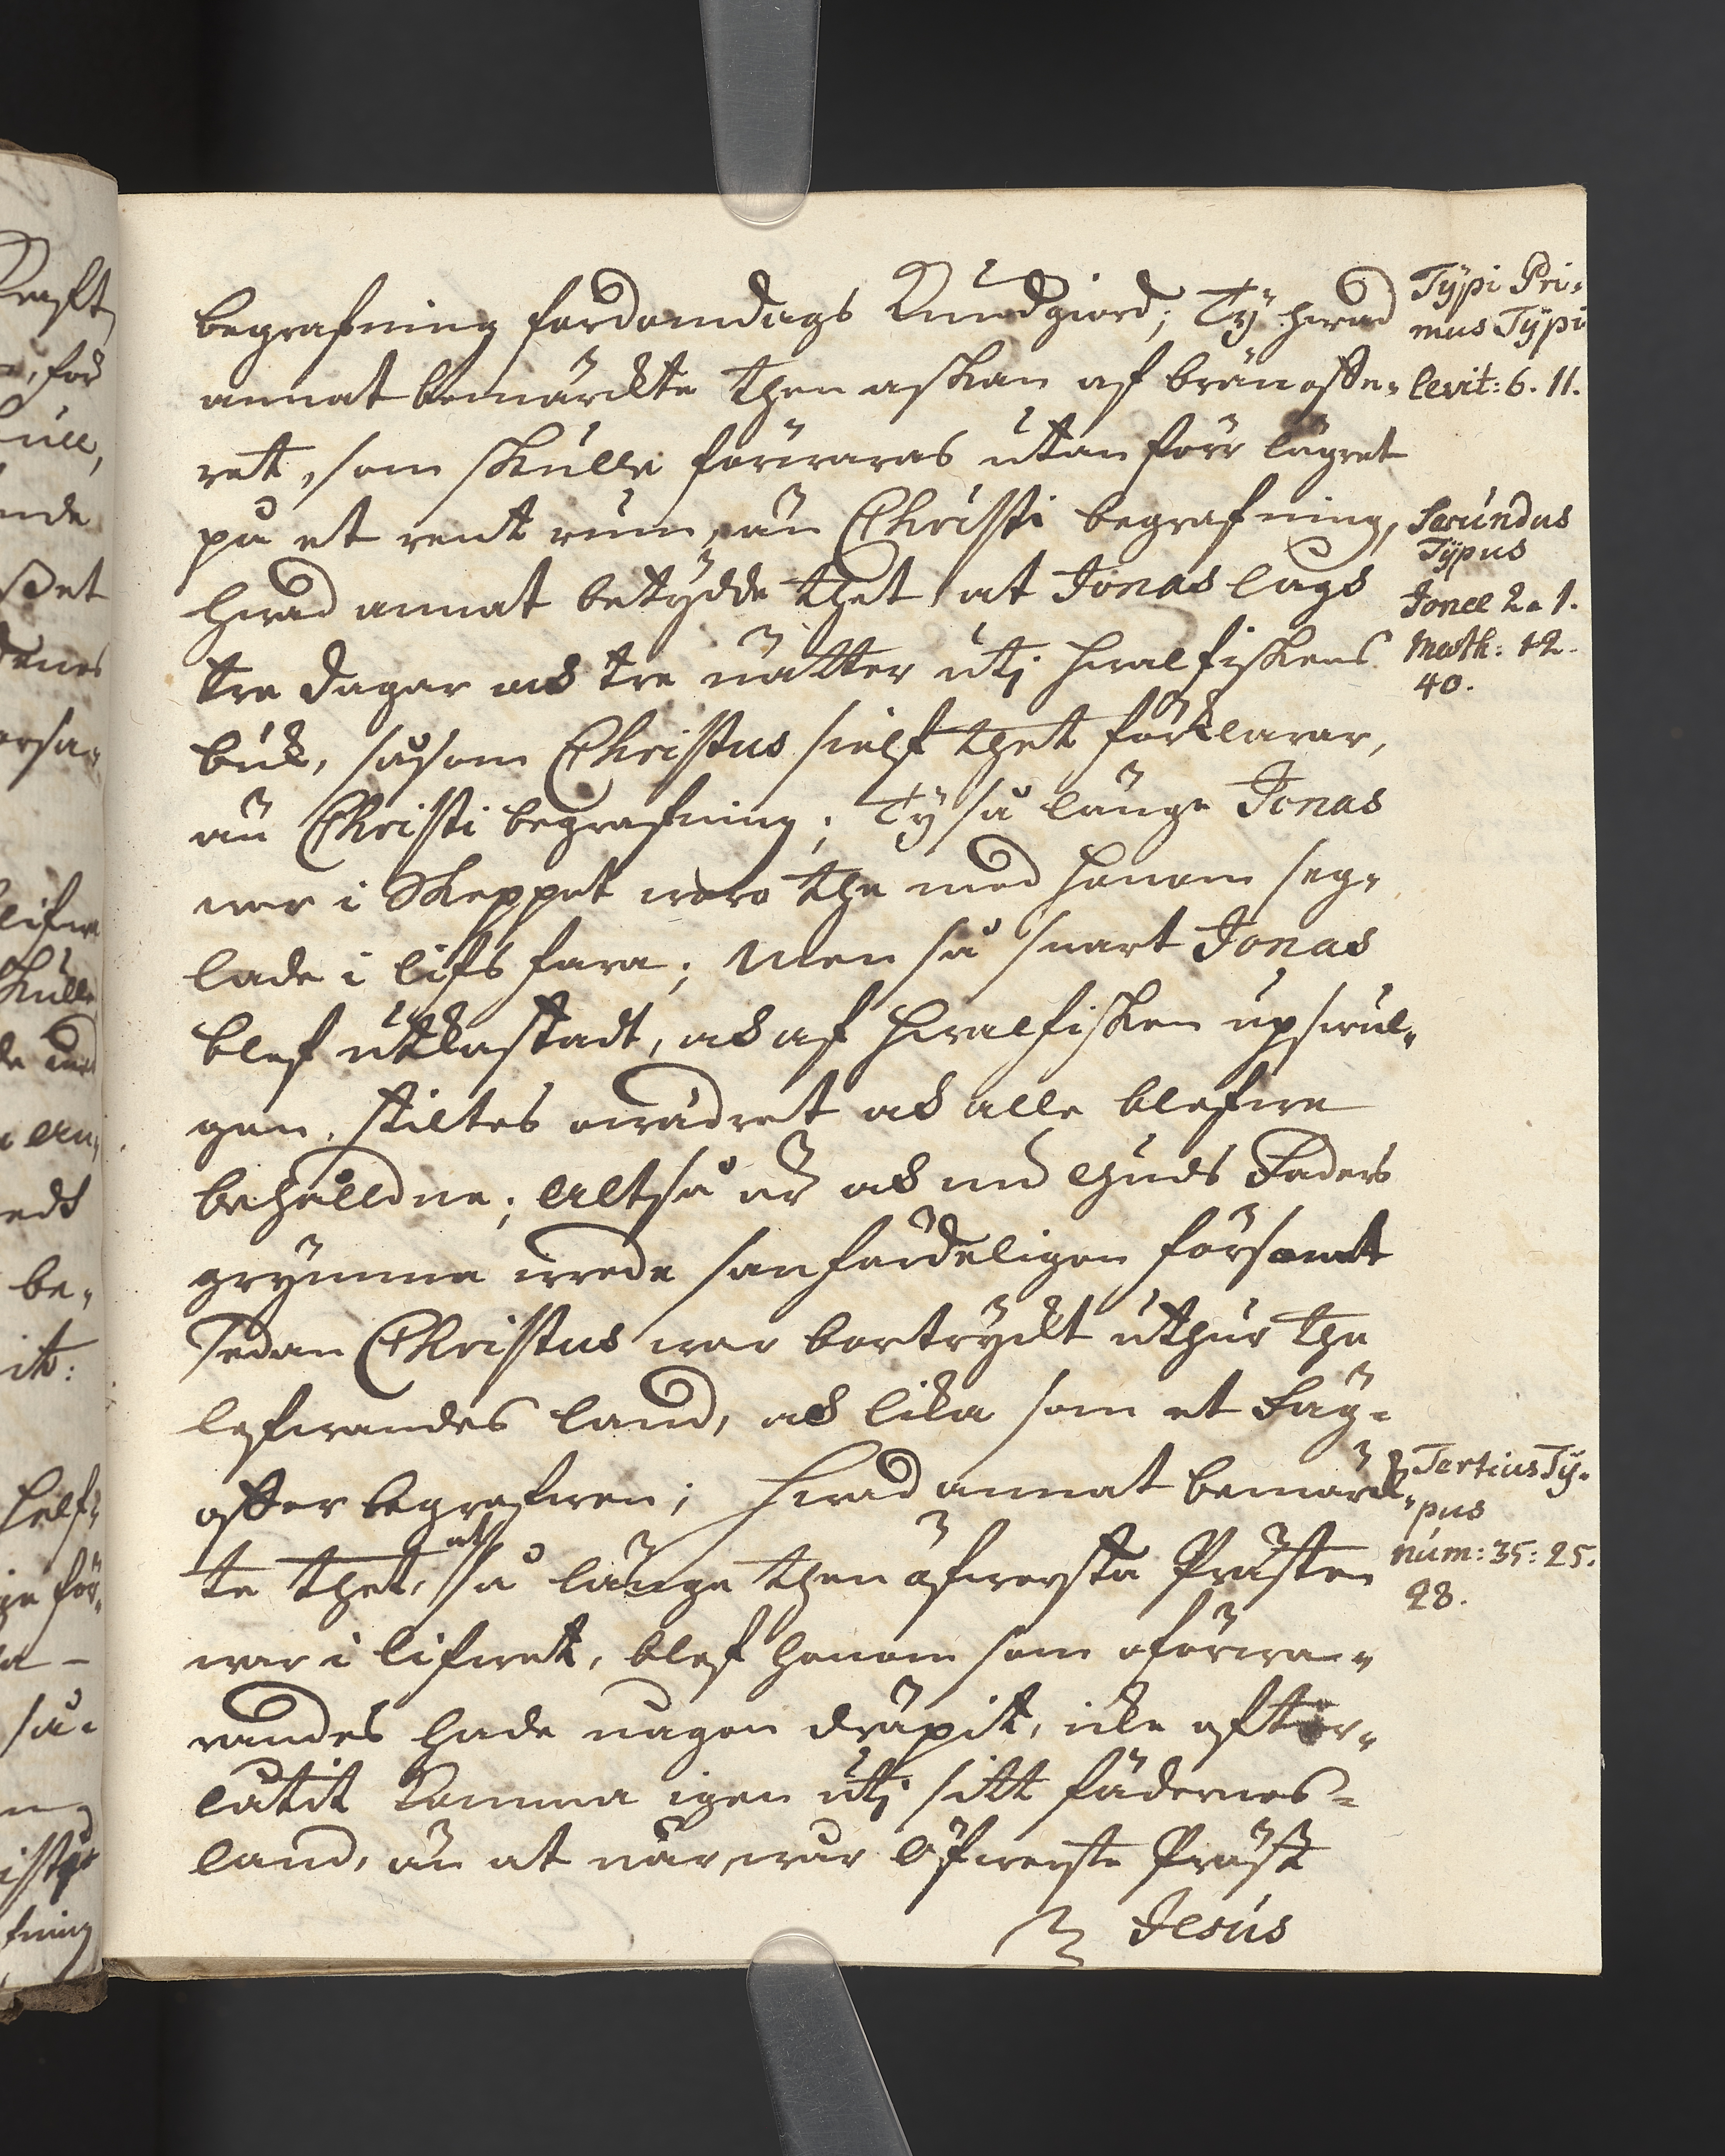 begrafning fordomdags Kundgiord; Ty hwad
annat bemärckte then askan af bränoffe-
ret, som skulle förwaras utan förr lägret
på et rent rum, än Christi begrafning,
hwad annat betydde thet at Jonas lågs
tre dagar och tre nätter uti hwalfiskens
buk, såsom Christus sielf thet förklarar,
än Christi begrafning; Ty så länge Jonas
war i Skeppet woro the med honom seg-
lade i lifs fara; Men så snart Jonas
blef utkastadt, och af hwalfisken upswul-
gen, stiltes owädret och alle blefwe
behålldne; Altså är och nu Guds Faders
grymma wrede sanfärdeligen försont
sedan Christus war bortryckt uthur the
lefwandes land, och lika som et Säg-
offer begrafwen; Hwad annat bemärck-
te thet, at så länge then öfwersta Prästen
war i lifwet, blef honom som oförwa-
randes hade någon dräpit, icke efter-
låtit komma igen uti sitt fädernes-
land, än at när, wår öfwerste Präst
Jesus
Typi Pri-
mus Typi
Levit: 6. 11.
Secundus
Typus
Jonæ 2. 1.
Math: 12.
40.
Tertius Ty-
pus
Num: 35: 25.
28.